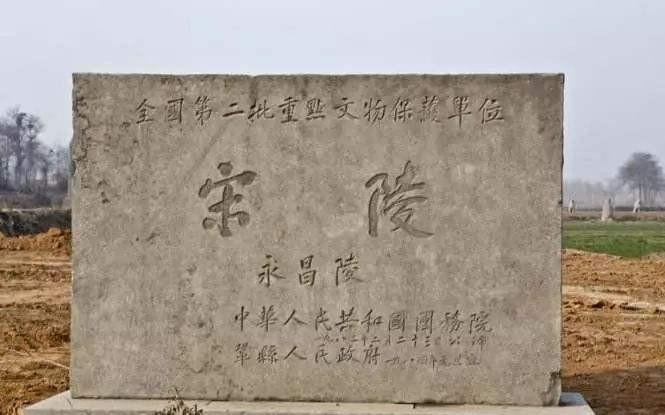 全國第二批重點文物保護單位
宋陵
永昌陵
中華人民共和國國務院
一九八二年二月二十三日公佈
鞏縣人民政府
一九八四年